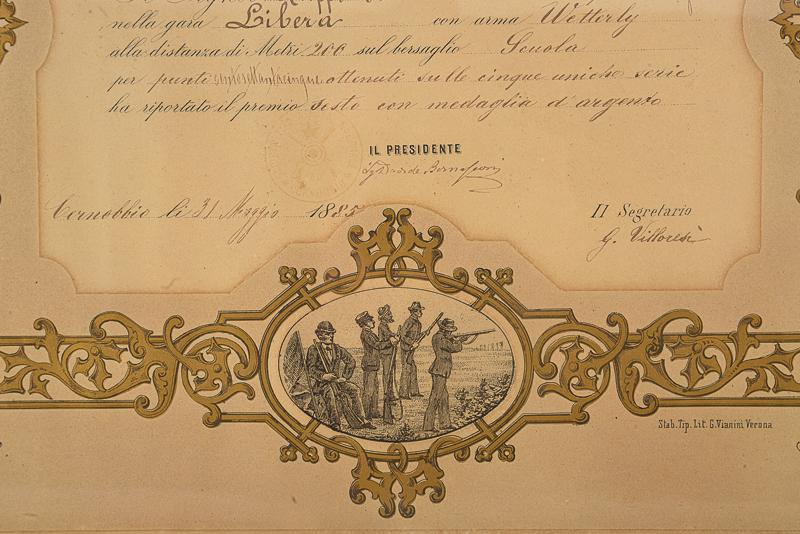 nella gara Libera con arma Wetterly
alla distanza di Metri 200 sul bersaglio Scuola
per punti centosettantacinque ottenuti sulle cinque uniche serie
ha riportato il premio sesto con medaglia d'argento
IL PRESIDENTE
Cernobbio li 31 Maggio 1885
Il Segretario
G. Villoresi
Stab. Tip. Lit. G. Vianini Verona